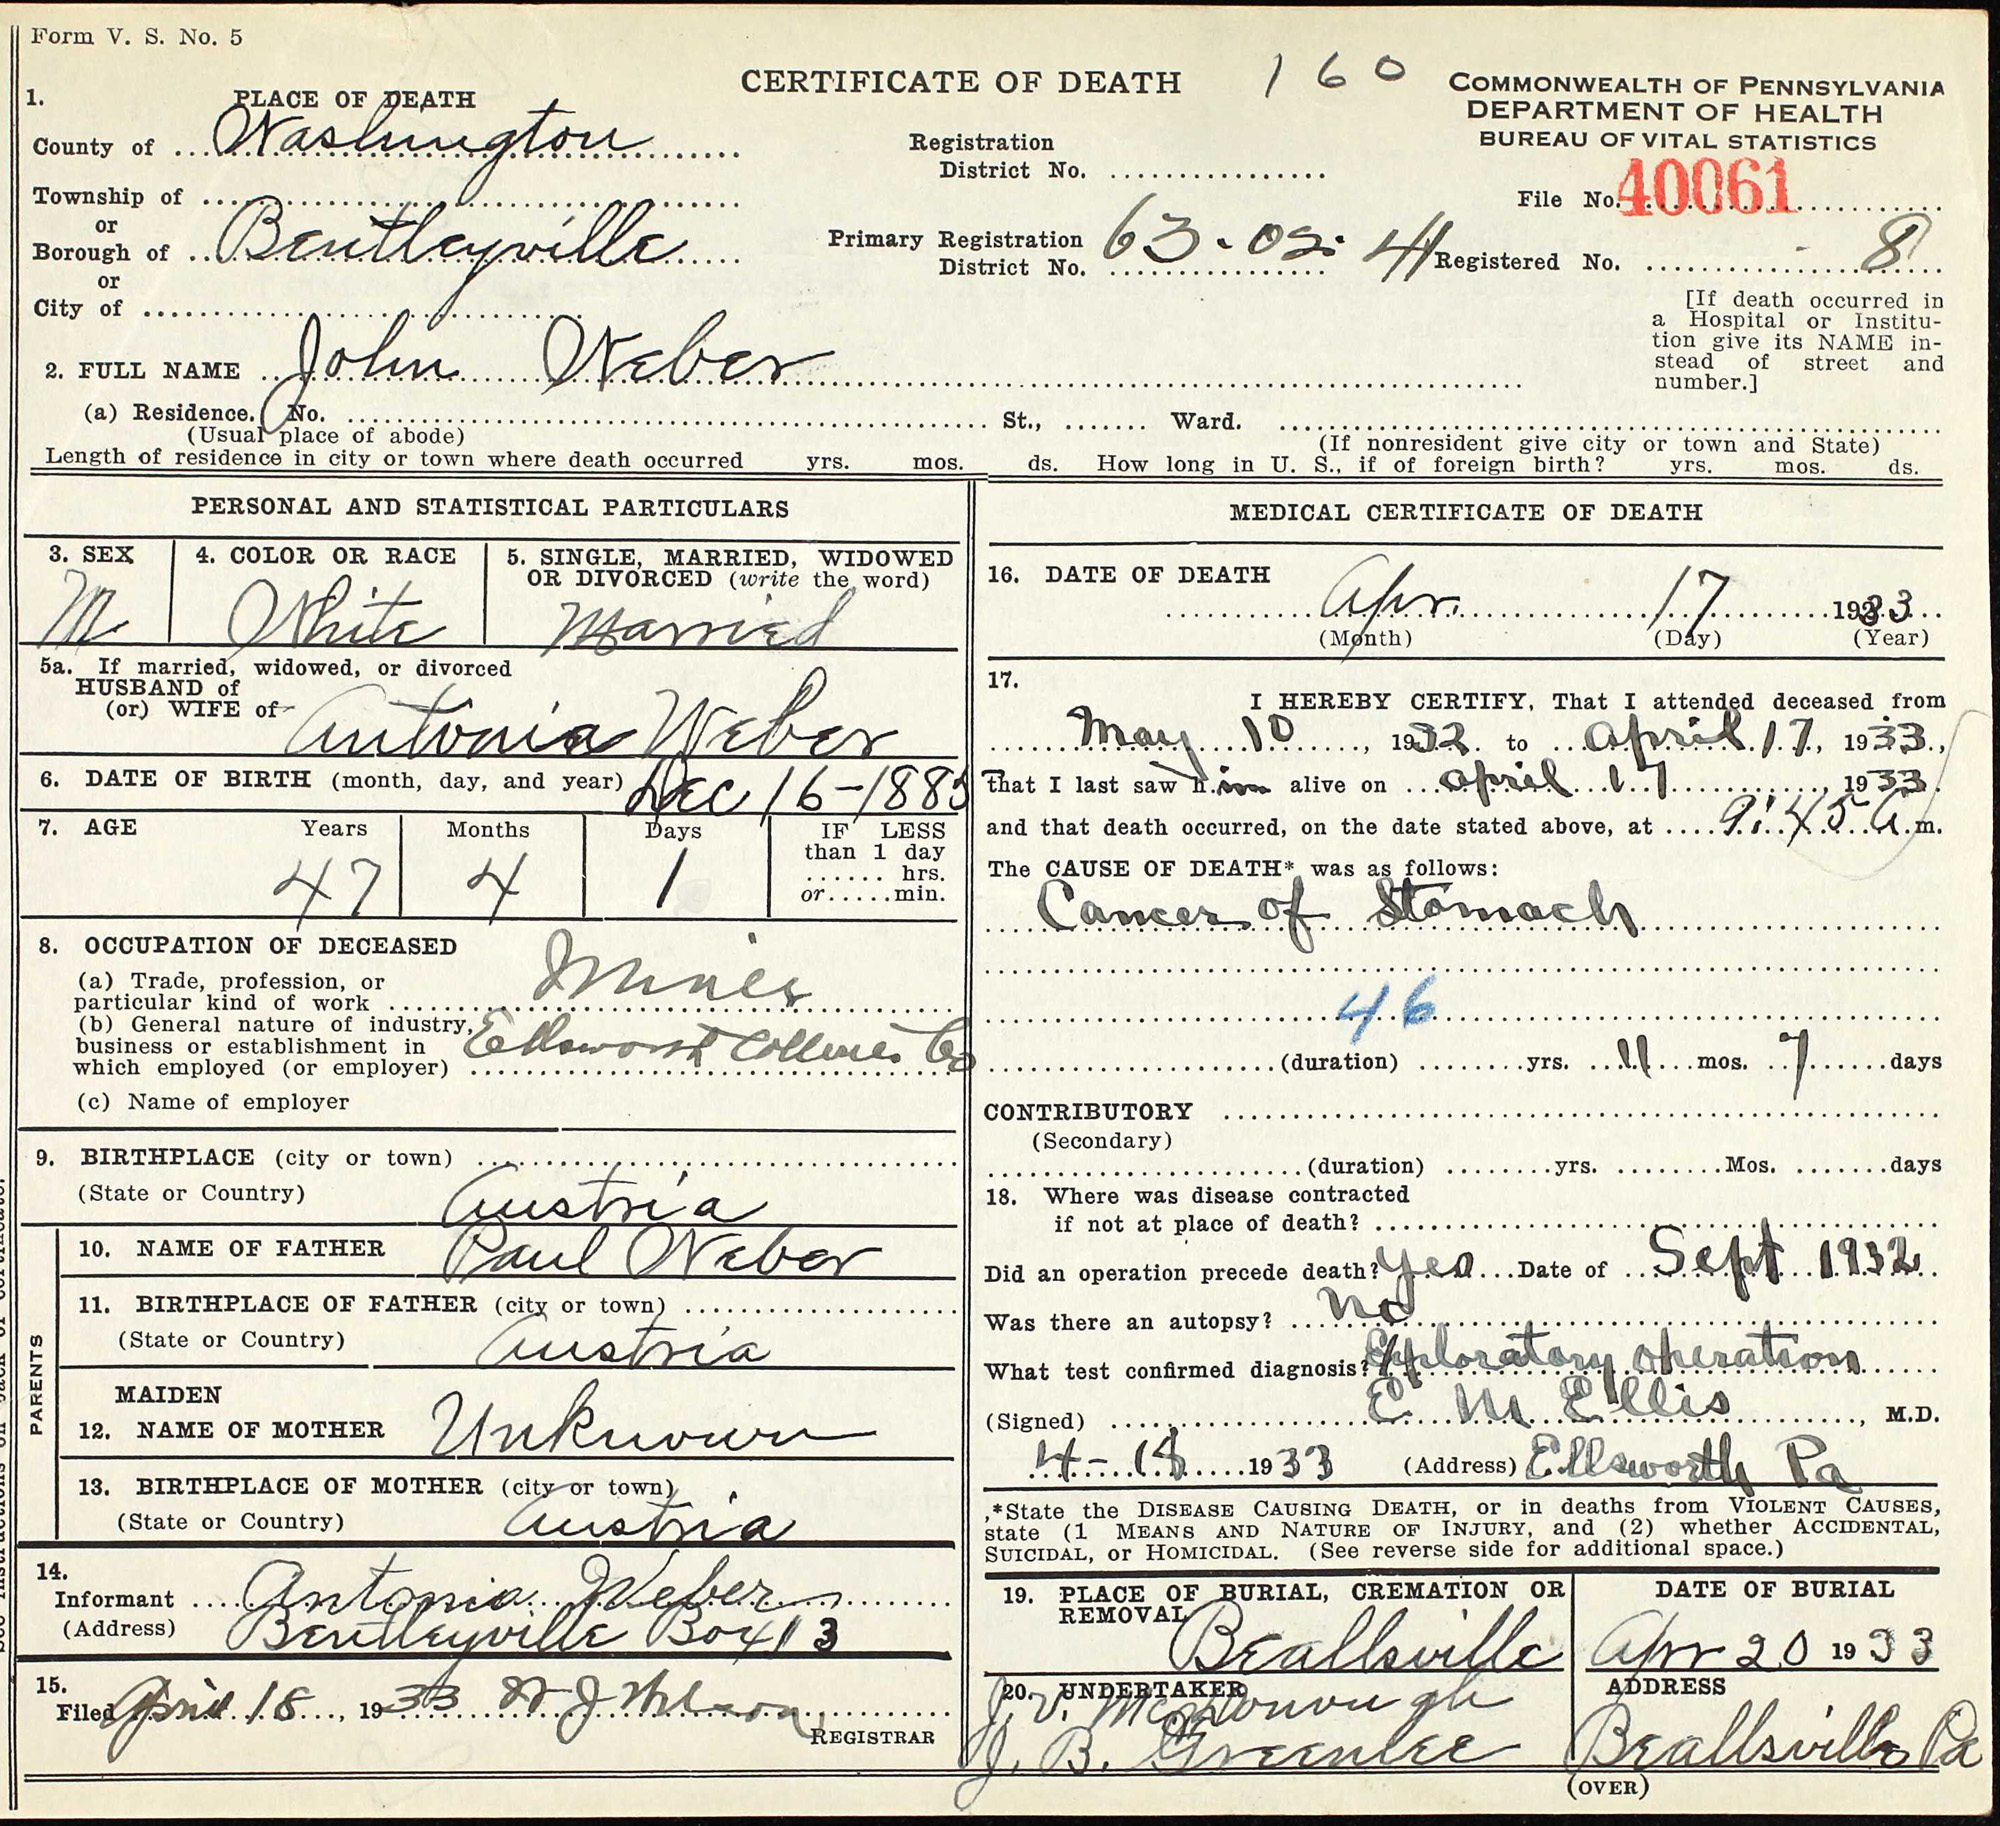 Form V. S. No. 5
CERTIFICATE OF DEATH 160
COMMONWEALTH OF PENNSYLVANIA
DEPARTMENT OF HEALTH
BUREAU OF VITAL STATISTICS
1. PLACE OF DEATH
County of Washington
Registration
District No.
File No. 40061
Township of
or
Borough of Bentleyville
Primary Registration
District No. 63-02-41
Registered No. 8
or
City of
[If death occurred in
a Hospital or Institu-
tion give its NAME in-
stead of street and
number.]
2. FULL NAME John Weber
(a) Residence. No. St., Ward.
(Usual place of abode) (If nonresident give city or town and State)
Length of residence in city or town where death occurred yrs. mos. ds. How long in U. S., if of foreign birth? yrs. mos. ds.
PERSONAL AND STATISTICAL PARTICULARS
3. SEX 4. COLOR OR RACE 5. SINGLE, MARRIED, WIDOWED
OR DIVORCED (write the word)
M White Married
5a. If married, widowed, or divorced
HUSBAND of
(or) WIFE of Antonia Weber
6. DATE OF BIRTH (month, day, and year) Dec 16-1885
7. AGE Years Months Days IF LESS
than 1 day
hrs.
or min.
47 4 1
8. OCCUPATION OF DECEASED
(a) Trade, profession, or
particular kind of work Miner
(b) General nature of industry,
business or establishment in
which employed (or employer) Ellsworth Collieries Co
(c) Name of employer
9. BIRTHPLACE (city or town)
(State or Country) Austria
PARENTS
10. NAME OF FATHER Paul Weber
11. BIRTHPLACE OF FATHER (city or town)
(State or Country) Austria
MAIDEN
12. NAME OF MOTHER Unknown
13. BIRTHPLACE OF MOTHER (city or town)
(State or Country) Austria
14.
Informant Antonia Weber
(Address) Bentleyville Box 413
15.
Filed April 18, 1933 J Wilson
REGISTRAR
MEDICAL CERTIFICATE OF DEATH
16. DATE OF DEATH
Apr. 17 1933
(Month) (Day) (Year)
17.
I HEREBY CERTIFY, That I attended deceased from
May 10, 1932 to April 17, 1933,
that I last saw him alive on April 17 1933
and that death occurred, on the date stated above, at 9:45 A.m.
The CAUSE OF DEATH* was as follows:
Cancer of Stomach
46
(duration) yrs. 11 mos. 7 days
CONTRIBUTORY
(Secondary)
(duration) yrs. Mos. days
18. Where was disease contracted
if not at place of death?
Did an operation precede death? Yes Date of Sept 1932
Was there an autopsy? No
What test confirmed diagnosis? Exploratory operation
(Signed) E M Ellis, M.D.
4-18 1933 (Address) Ellsworth Pa
*State the DISEASE CAUSING DEATH, or in deaths from VIOLENT CAUSES,
state (1 MEANS AND NATURE OF INJURY, and (2) whether ACCIDENTAL,
SUICIDAL, or HOMICIDAL. (See reverse side for additional space.)
19. PLACE OF BURIAL, CREMATION OR
REMOVAL
Beallsville
DATE OF BURIAL
Apr 20 1933
20. UNDERTAKER
J. V. McDonough
J. B. Greenlee
ADDRESS
Beallsville Pa
(OVER)